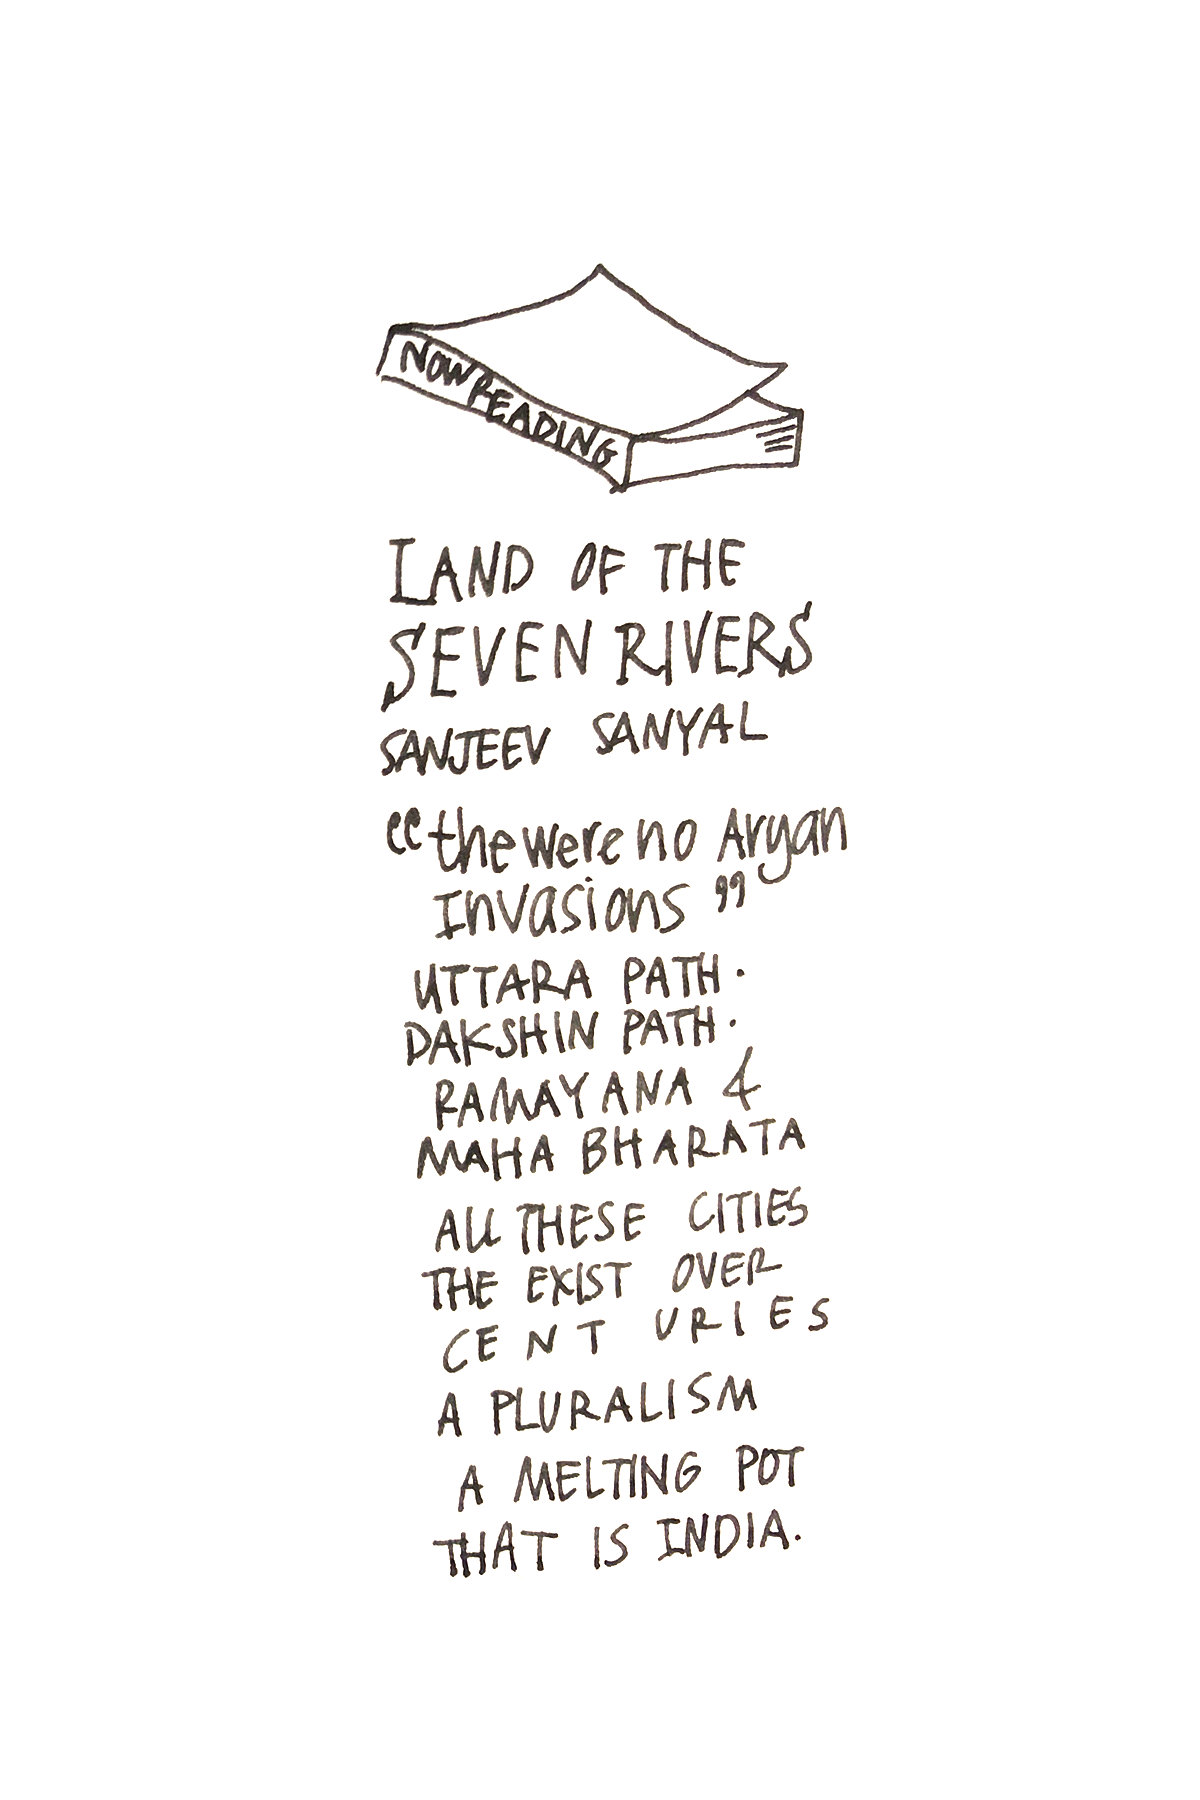 NOW READING
LAND OF THE
SEVEN RIVERS
SANJEEV SANYAL
“the were no Aryan
Invasions”
UTTARA PATH.
DAKSHIN PATH.
RAMAYANA &
MAHA BHARATA
ALL THESE CITIES
THE EXIST OVER
CENT URIES
A PLURALISM
A MELTING POT
THAT IS INDIA.